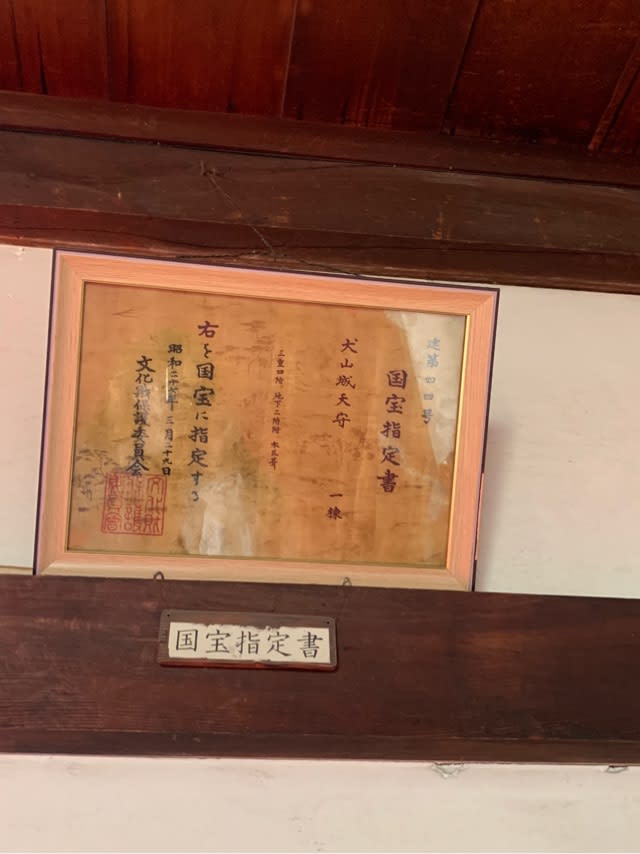 建第四四号
国宝指定書
犬山城天守 一棟
三重四階、地下二階附 本瓦葺
右を国宝に指定する
昭和二十六年 三月二十九日
文化財保護委員会
国宝指定書